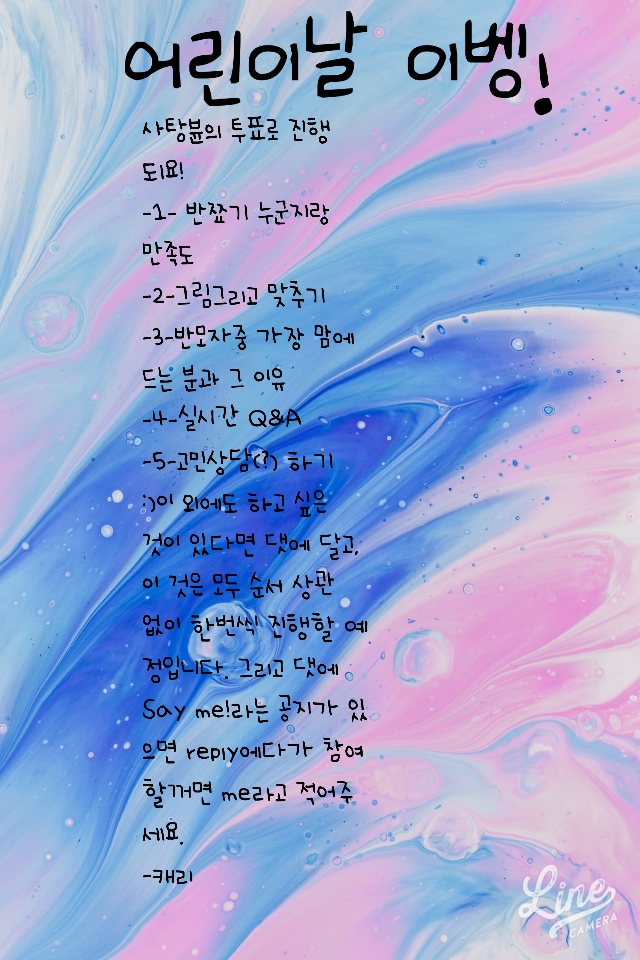 어린이날 이벵!
사탕뷴의 투표로 진행
되요!
-1- 반쬬기 누군지랑
만족도
-2-그림그리고 맞추기
-3-반모자중 가장 맘에
드는 분과 그 이유
-4-실시간 Q&A
-5-고민상담(?) 하기
;)이 외에도 하고 싶은
것이 있다면 댓에 달고,
이 것은 모두 순서 상관
없이 한번씩 진행할 예
정입니다. 그리고 댓에
Say me!라는 공지가 있
으면 reply에다가 참여
할꺼면 me라고 적어주
세요.
-캐리
Line
CAMERA